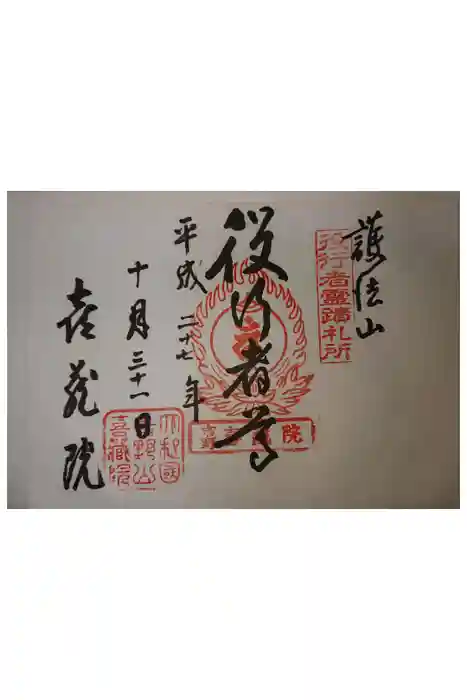 護法山
役行者霊蹟札所
役行者尊
院
平成二十七年
十月三十一日
大和國
喜蔵院
喜蔵院